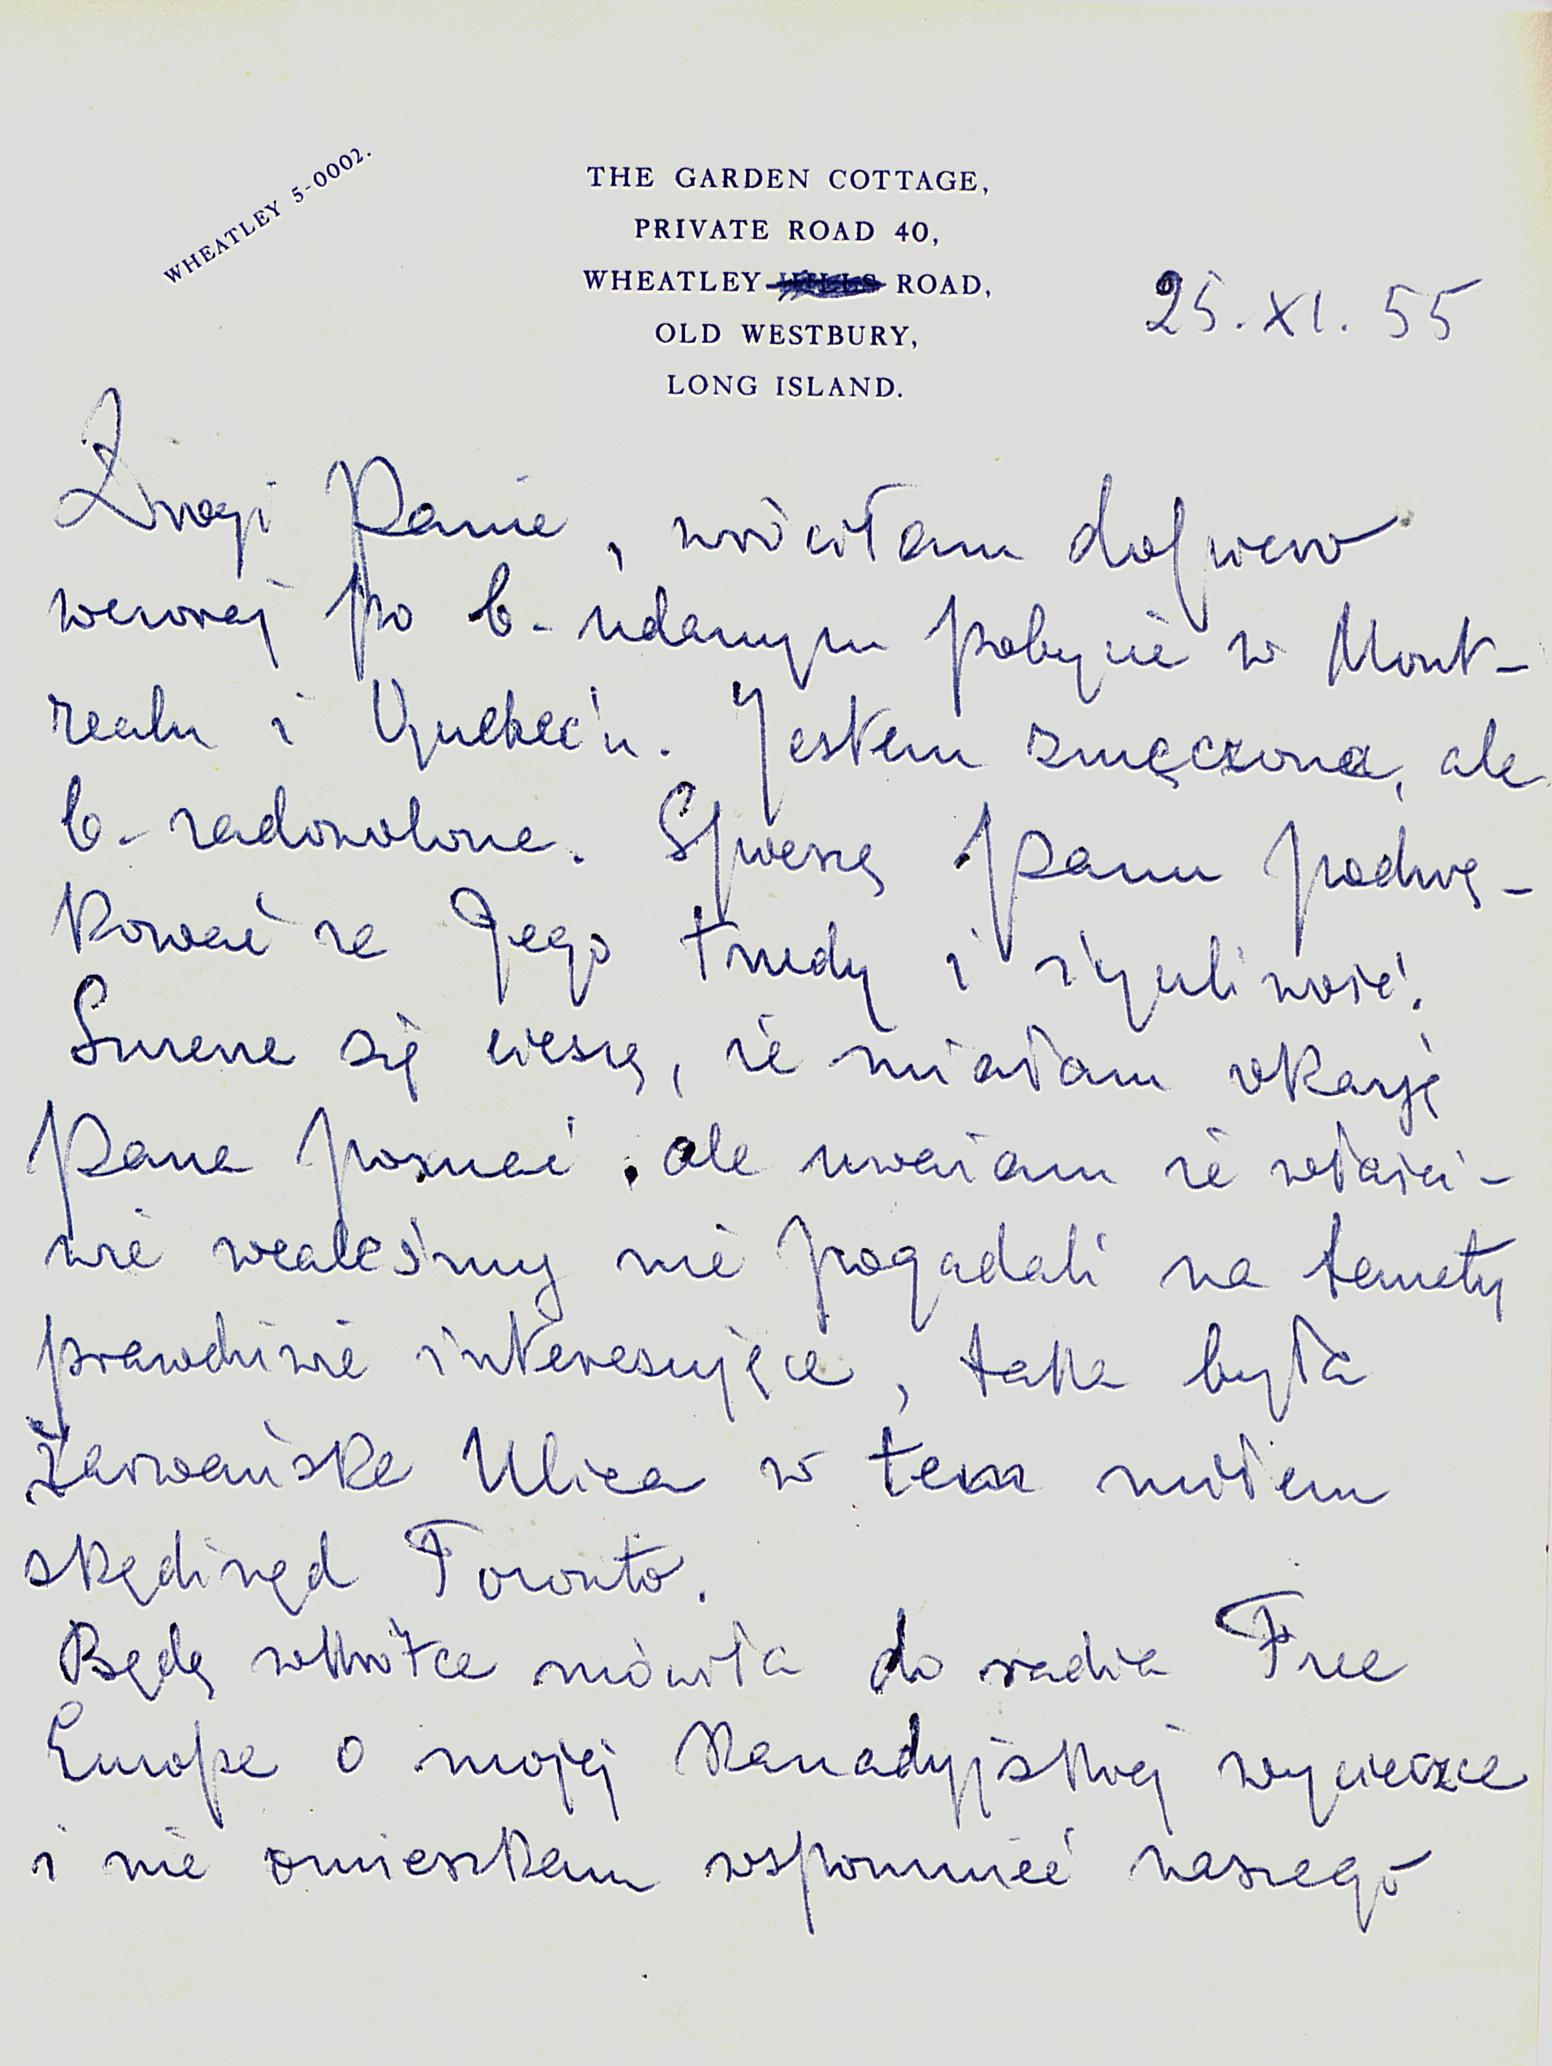 WHEATLEY 5-0002.
THE GARDEN COTTAGE,
PRIVATE ROAD 40,
WHEATLEY HILLS ROAD,
OLD WESTBURY,
LONG ISLAND.
25.XI.55
Drogi Panie, wróciłam dopiero
wczoraj po b. udanym pobycie w Mont-
realu i Quebec'u. Jestem zmęczona, ale
b. zadowolona. Spieszę Panu podzię-
kować za Jego trudy i życzliwość.
Szczerze się cieszę, że miałam okazję
Pana poznać, ale uważam że właści-
wie wcaleśmy nie pogadali na tematy
prawdziwie interesujące, taka była
Zarwańska Ulica w tem miłem
skądinąd Toronto.
Będę wkrótce mówiła do radia Free
Europe o mojej Kanadyjskiej wycieczce
i nie omieszkam wspomnieć naszego